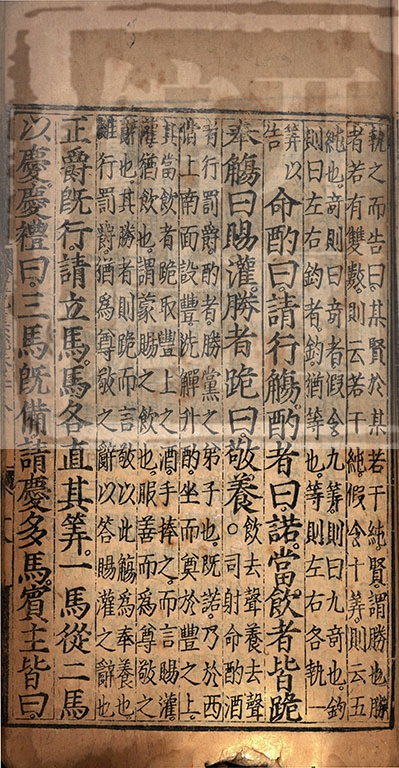 執之而告曰某賢於某若干純賢謂勝也勝
者若有雙數則云若干純假令十筭則云五
純也奇則曰奇者假令九筭則曰九奇也鈞
則曰左右鈞者鈞猶等也等則左右各執一
筭以告
命酌曰請行觴。酌者曰諾。當飲者皆跪
奉觴曰賜灌。勝者跪曰敬養。
飲去聲養去聲
司射命酌酒
者行罰爵酌者勝黨之弟子也既諾乃於西
階上南面設豐洗觶升酌坐而奠於豐之上
其當飲者跪取豐上之酒手捧之而言賜灌
灌猶飲也謂蒙賜之飲也服善而為尊敬之
辭也其勝者則跪而言敬以此觴為奉養也
雖行罰爵猶為尊敬之辭以答賜灌之辭也
正爵既行請立馬。馬各直其筭。一馬從二馬
以慶。慶禮曰。三馬既備請慶多馬。賓主皆曰